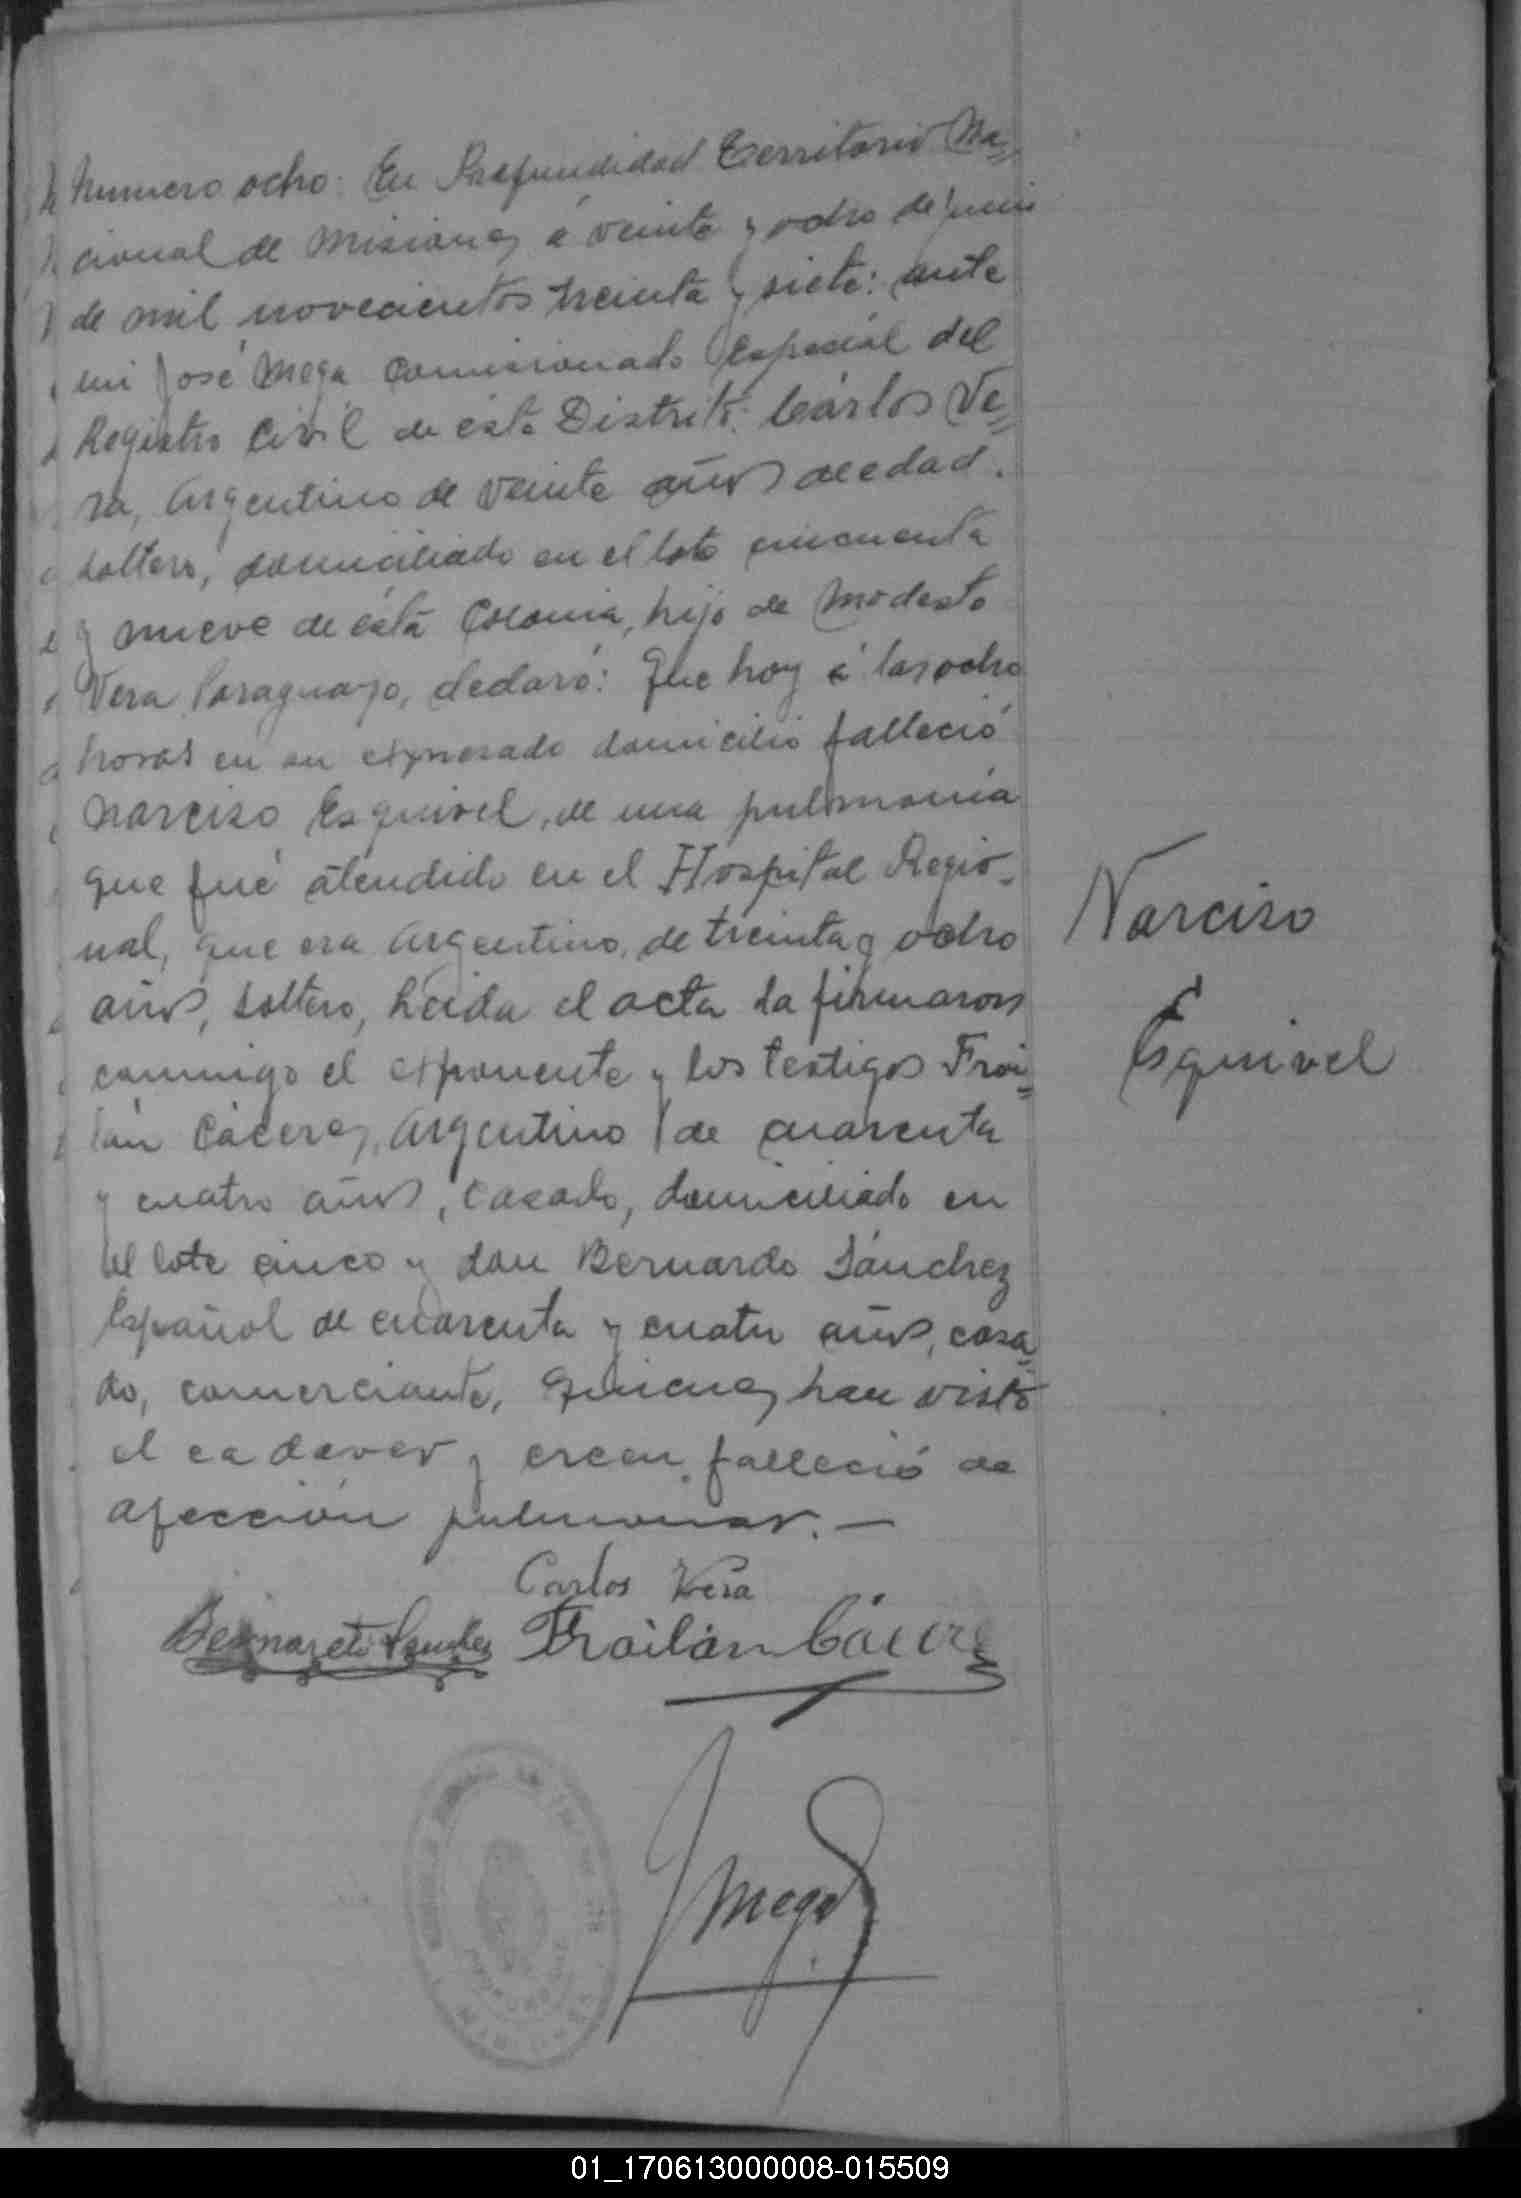 Numero ocho: En Profundidad Territorio Na=
cional de Misiones á veinte y ocho de junio
de mil novecientos treinta y siete: ante
mi José Mega Comisionado Especial del
Registro Civil de ésta Distrito: Cárlos Ve=
ra, Argentino de veinte años de edad.
soltero, domiciliado en el lote cincuenta
y nueve de ésta Colonia, hijo de Modesto
Vera Paraguayo, declaró: Que hoy á las ocho
horas en su expresado domicilio falleció
Narciso Esquivel, de una pulmonía
que fué atendido en el Hospital Regio-
nal, que era Argentino, de treinta y ocho
años, soltero, Leida el acta la firmaron
conmigo el exponente y los testigos Froi=
lán Cáceres, Argentino de cuarenta
y cuatro años, casado, domiciliado en
el lote cinco y don Bernardo Sánchez
Español de cuarenta y cuatro años, casa=
do, comerciante, quienes han visto
el cadaver y creen falleció de
afección pulmonar. —
Narciso
Esquivel
Carlos Vera
Bernardo Sanchez Froilán Cáceres
J Mega
01_170613000008-015509